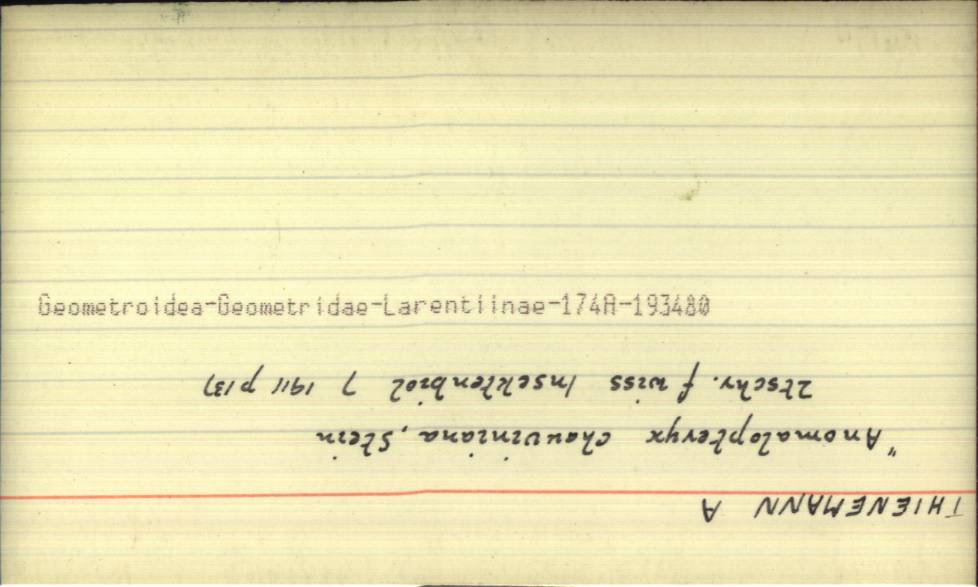 Geometroidea-Geometridae-Larentiinae-174A-193480
THIENEMANN A
"Anomalopteryx chauviniana, Stein
Ztschr. f wiss Insektenbiol 7 1911 p 137